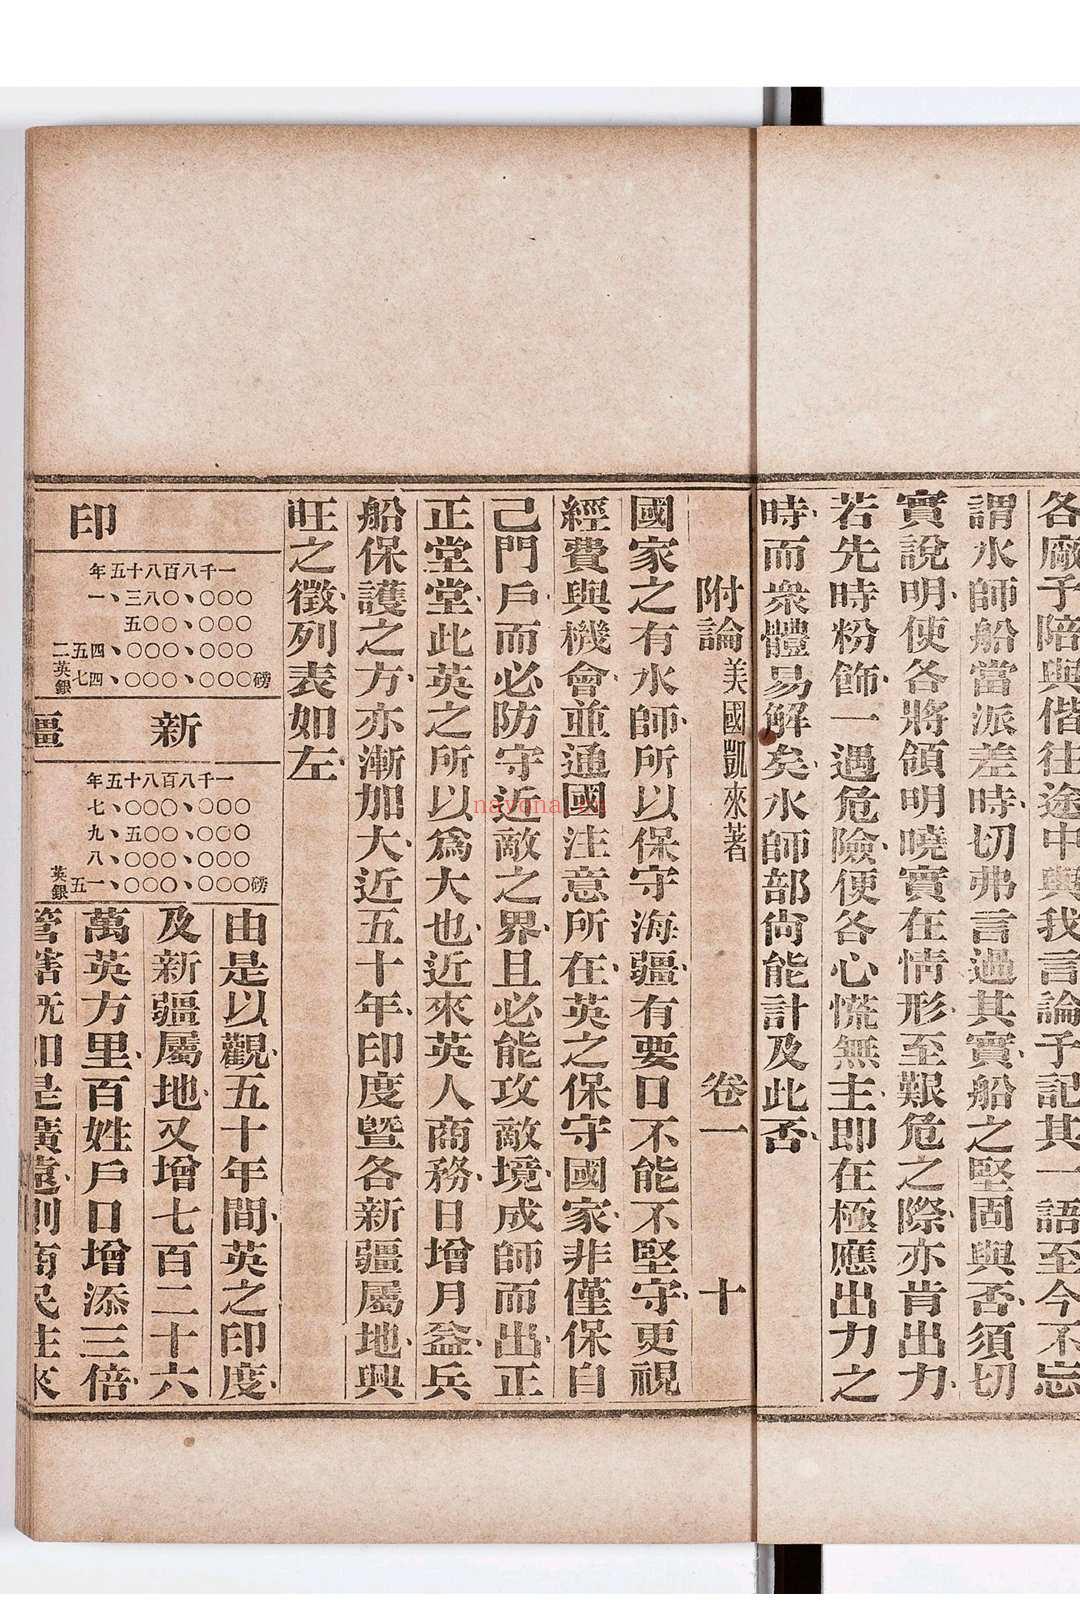 各廠予陪與偕往途中與我言論予記其一語至今不忘
謂水師船當派差時切弗言過其實船之堅固與否須切
實說明使各將領明曉實在情形至艱危之際亦肯出力
若先時粉飾一遇危險便各心慌無主卽在極應出力之
時而衆體易解矣水師部尙能計及此否
附論美國凱來著 卷一 十
國家之有水師所以保守海疆有要口不能不堅守更視
經費與機會並通國注意所在英之保守國家非僅保自
己門戶而必防守近敵之界且必能攻敵境成師而出正
正堂堂此英之所以爲大也近來英人商務日增月益兵
船保護之方亦漸加大近五十年印度暨各新疆屬地興
旺之徵列表如左
印
一千八百八十五年
一、三八〇、〇〇〇
五〇〇、〇〇〇
二五四、〇〇〇、〇〇〇
英銀七四、〇〇〇、〇〇〇磅
新疆
一千八百八十五年
七、〇〇〇、〇〇〇
九、五〇〇、〇〇〇
八、〇〇〇、〇〇〇
英銀五一、〇〇〇、〇〇〇磅
由是以觀五十年間英之印度
及新疆屬地又增七百二十六
萬英方里百姓戶口增添三倍
管轄旣如是廣遠則商民往來
nayona.cn